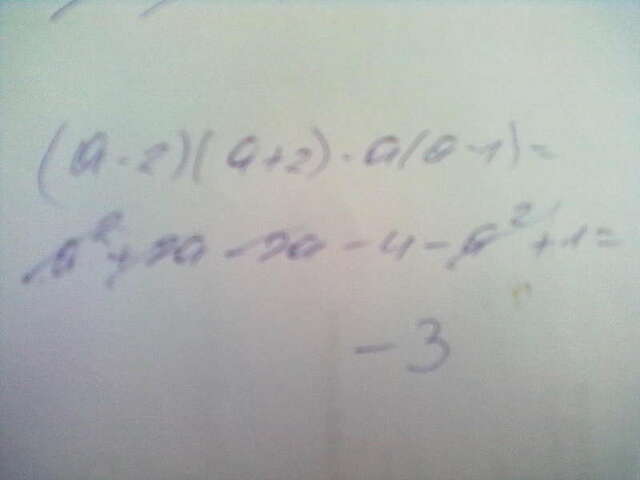 (a-2)(a+2)-a(a-1)=
a²+2a-2a-4-a²+1=
-3